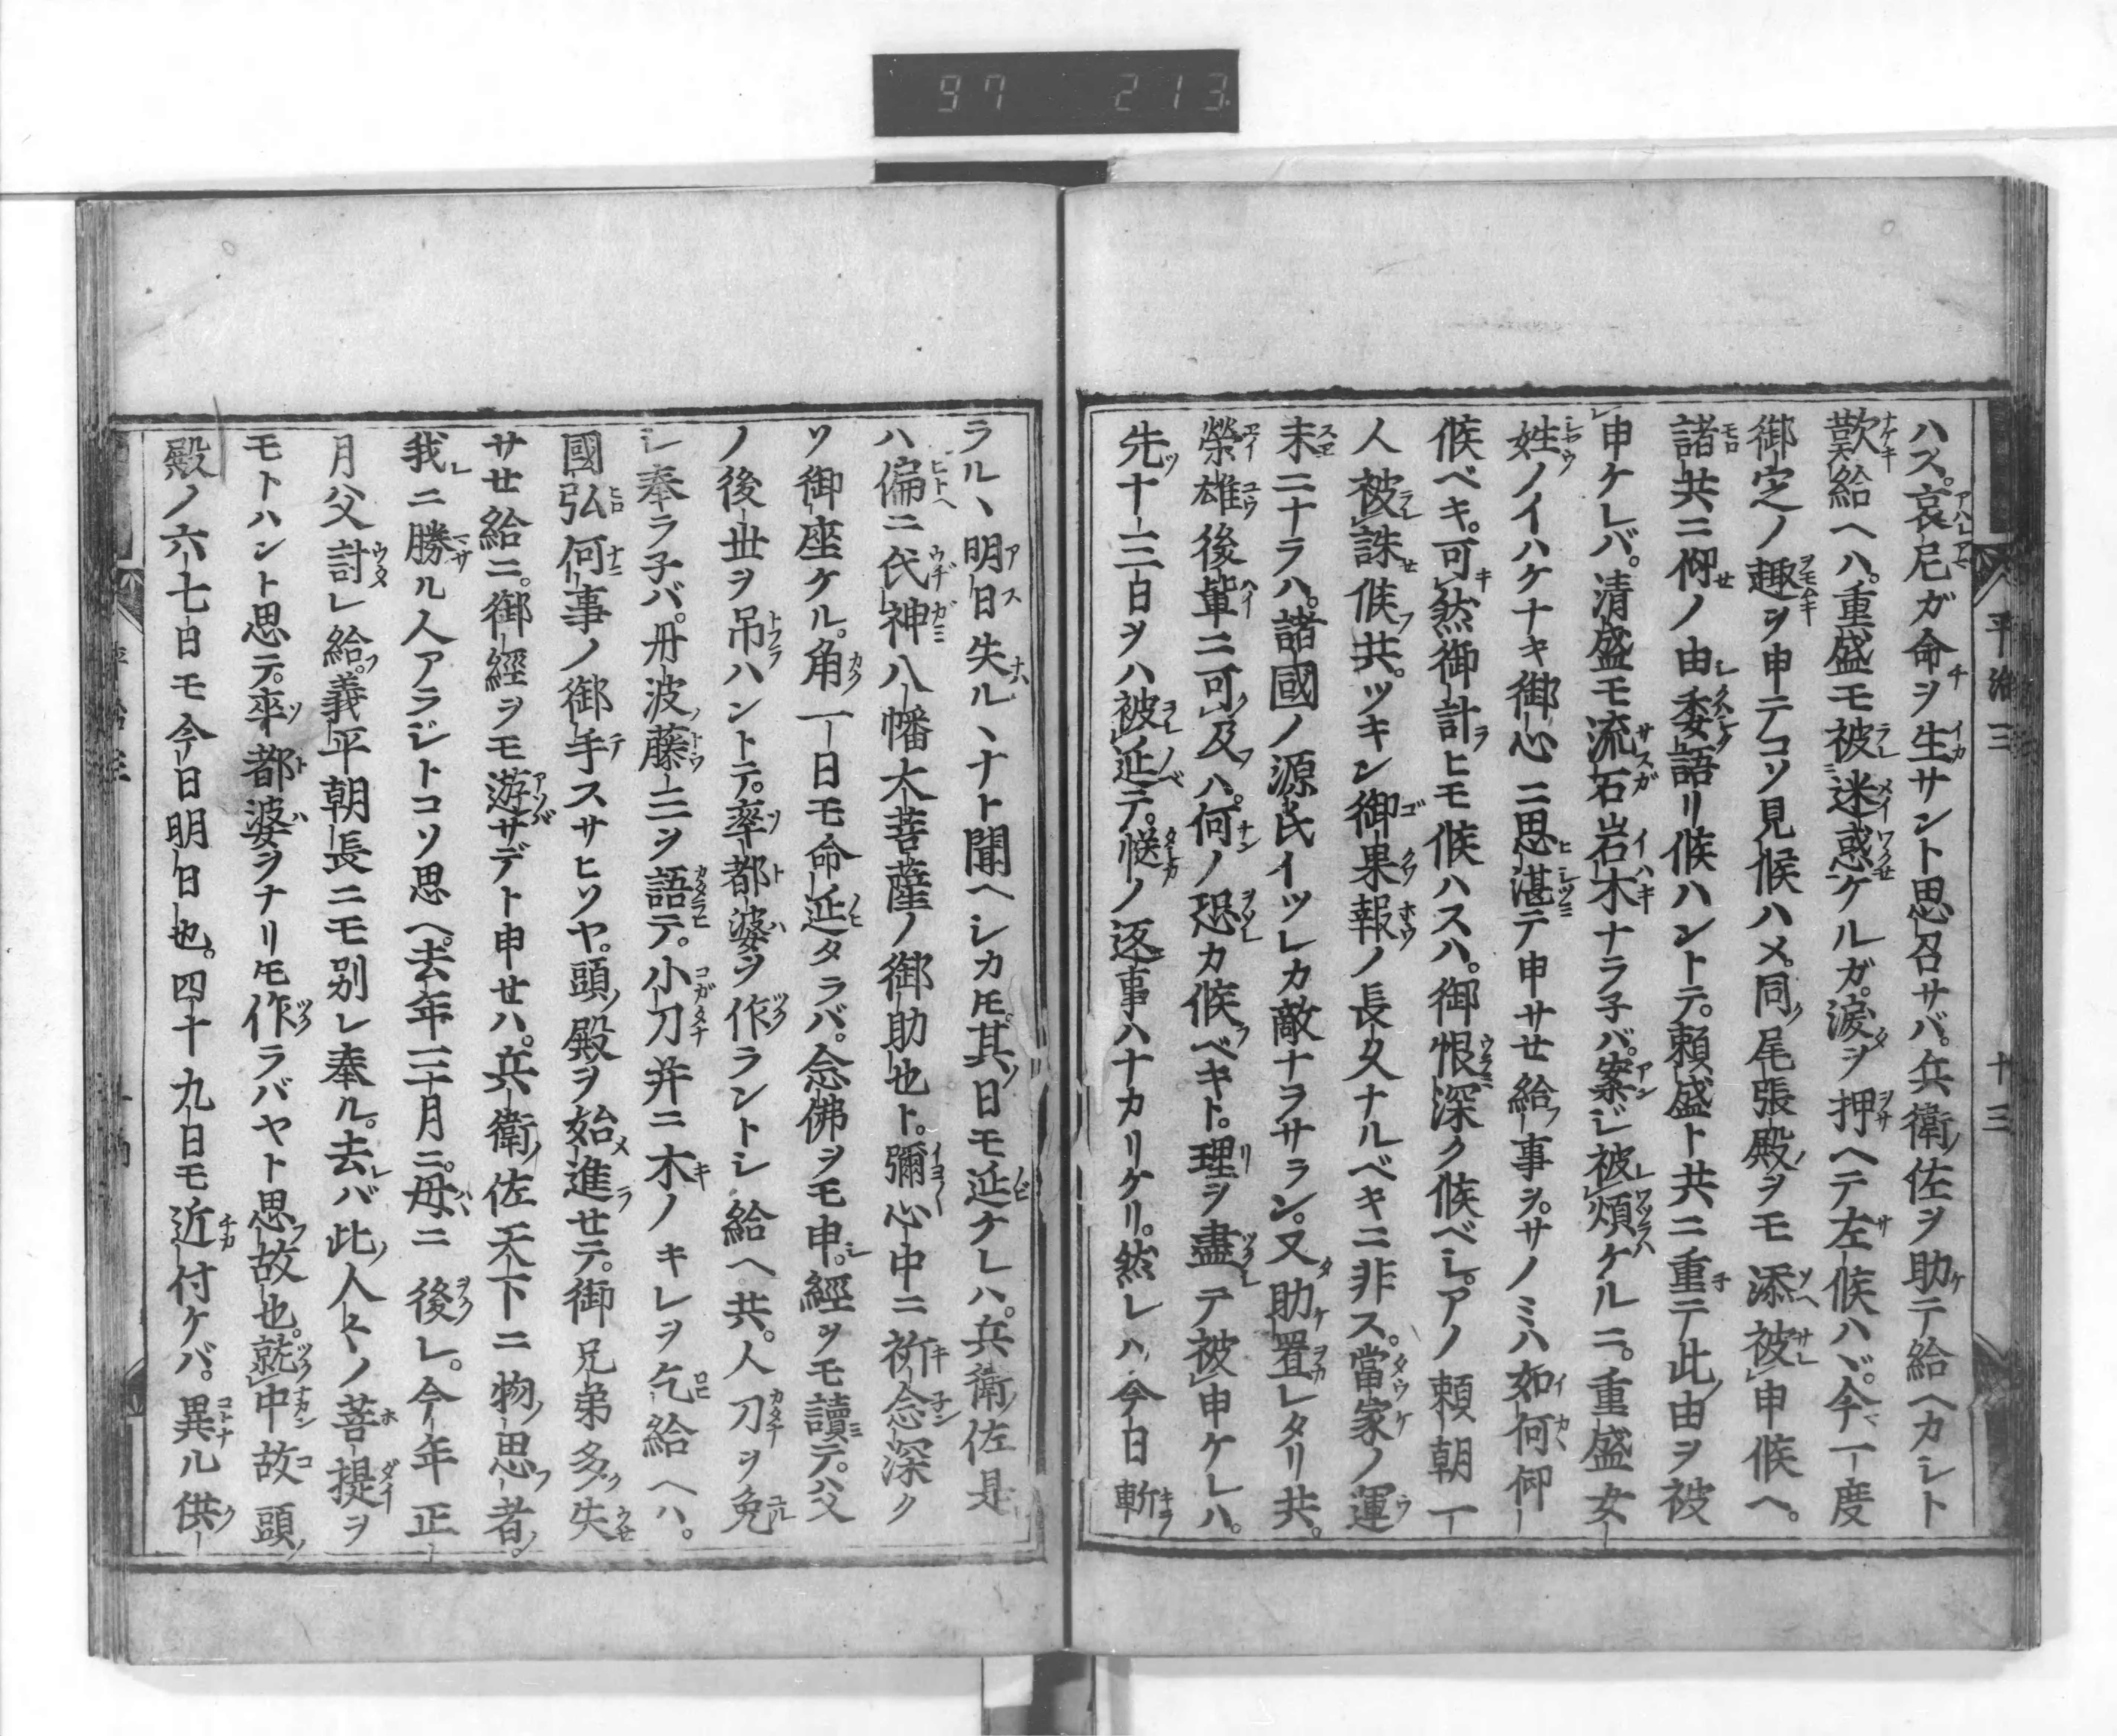 97 213
平治三 十三
ハズ。哀尼ガ命ヲ生サント思召サバ。兵衛佐ヲ助テ給ヘカシト
歎給ヘハ。重盛モ被迷惑ケルガ。涙ヲ押ヘテ左候ハヾ。今一度
御定ノ趣ヲ申テコソ見候ハメ。同尾張殿ヲモ添被申候ヘ。
諸共ニ仰ノ由委語リ候ハントテ。頼盛ト共ニ重テ此由ヲ被
申ケレバ。清盛モ流石岩木ナラ子バ。案ジ被煩ケルニ。重盛女
姓ノイハケナキ御心ニ思湛テ申サセ給事ヲ。サノミハ如何仰
候ベキ。可然御計ヒモ候ハスハ。御恨深ク候ベシ。アノ頼朝一
人被誅候共。ツキン御果報ノ長久ナルベキニ非ス。當家ノ運
末ニナラハ。諸國ノ源氏イツレカ敵ナラサラン。又助置レタリ共。
榮雄後輩ニ可及ハ。何ノ恐カ候ベキト。理ヲ盡テ被申ケレハ。
先十三日ヲハ被延テ。慥ノ返事ハナカリケリ。然レハ今日斬
ラルヽ明日失ルヽナト聞ヘシカ𪜈。其日モ延ケレハ。兵衛佐是
ハ偏ニ氏神八幡大菩薩ノ御助也ト。彌心中ニ祈念深ク
ソ御座ケル。角一日モ命延タラバ。念佛ヲモ申。經ヲモ讀テ。父
ノ後世ヲ吊ハントテ。率都婆ヲ作ラントシ給ヘ共。人刀ヲ免
シ奉ラ子バ。丹波藤三ヲ語テ。小刀并ニ木ノキレヲ乞給ヘハ。
國弘何事ノ御手スサヒソヤ。頭殿ヲ始進セテ。御兄弟多失
サセ給ニ。御經ヲモ遊サデト申セハ。兵衛佐天下ニ物思者。
我ニ勝ル人アラジトコソ思ヘ。去年三月ニ。母ニ後レ。今年正
月父討レ給。義平朝長ニモ別レ奉ル。去バ此人々ノ菩提ヲ
モトハント思テ。卒都婆ヲナリ𪜈作ラバヤト思故也。就中故頭
殿ノ六七日モ今日明日也。四十九日モ近付ケバ。異ル供